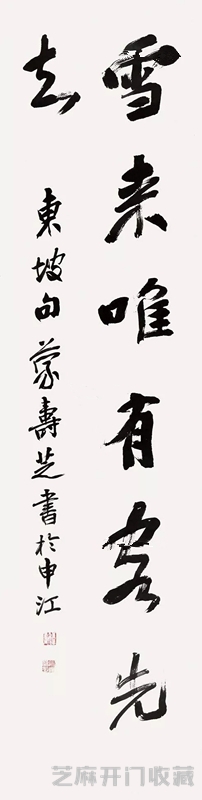 雪来唯有客先
知
東坡句蒙壽芝書於申江
芝麻开门收藏